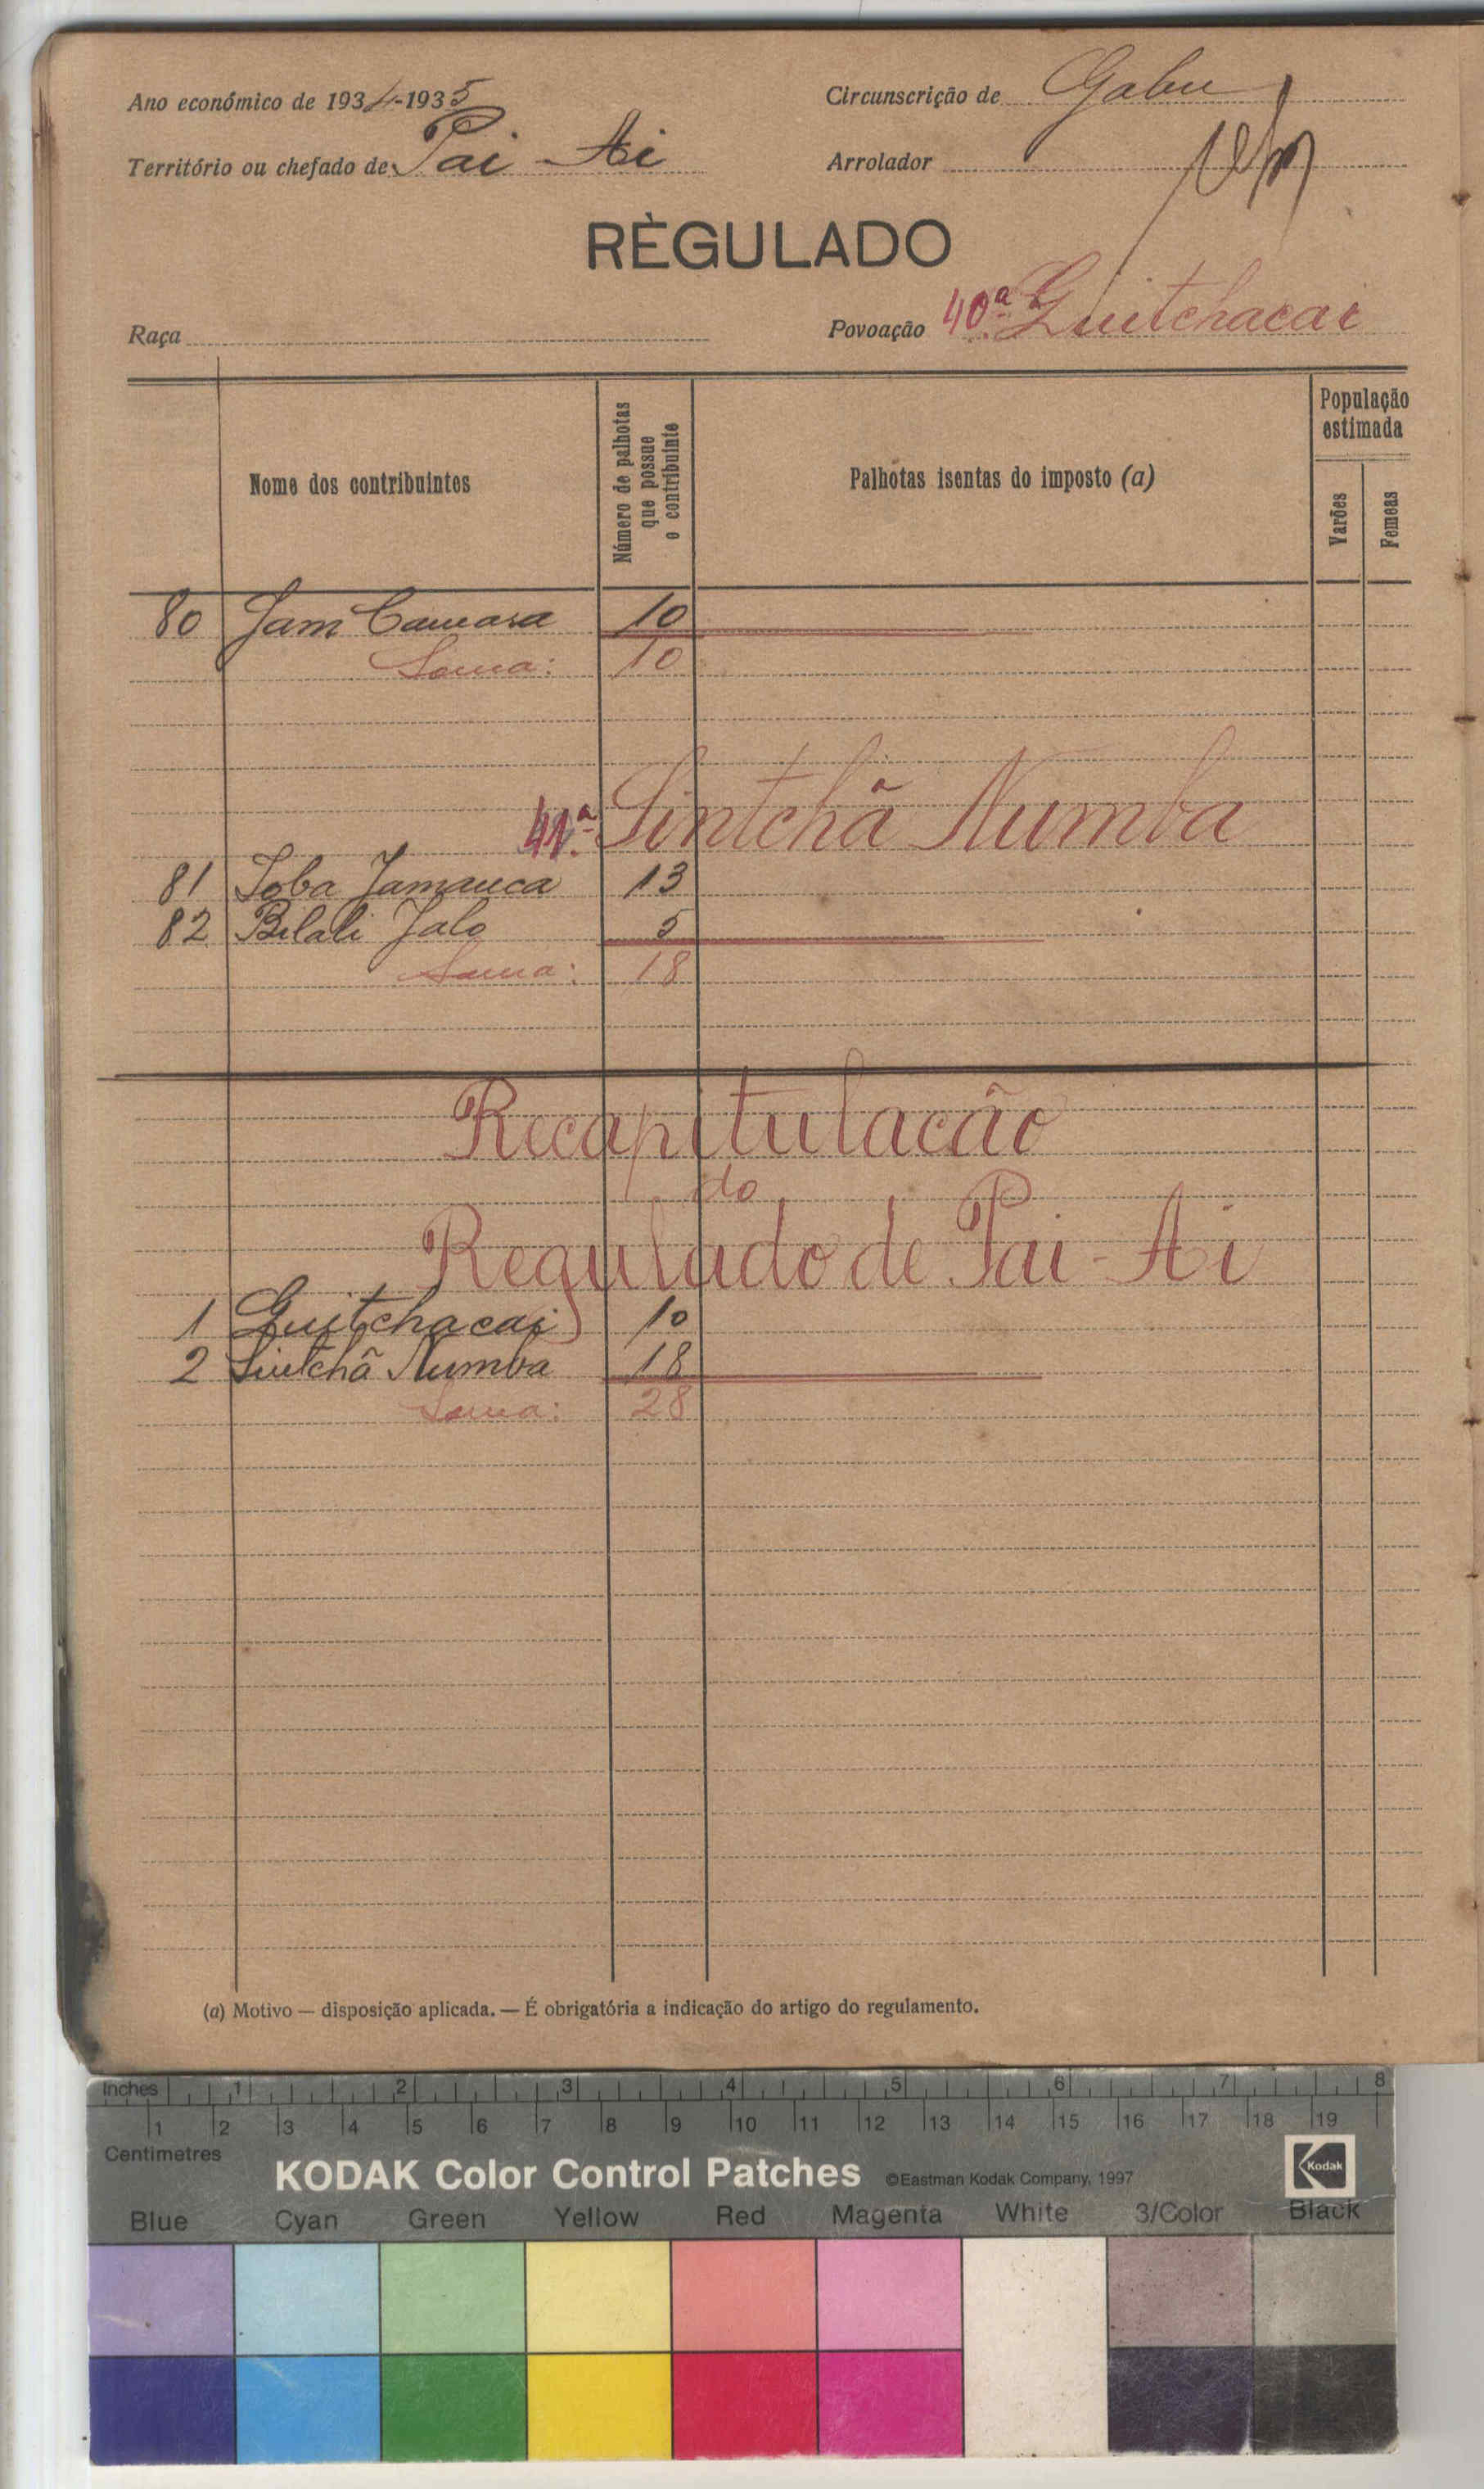 Ano económico de 1934-1935
Circunscrição de Gabu
Território ou chefado de Pai-Ai
Arrolador
RÈGULADO
Raça
Povoação 40ª Guitchacai
Nome dos contribuintes
Número de palhotas que possue o contribuinte
Palhotas isentas do imposto (a)
População estimada
Varões
Femeas
80 Jam Camara 10
Soma: 10
41ª Sintchã Numba
81 Joba Jamanca 13
82 Bilali Jalo 5
Soma: 18
Recapitulacão
do
Regulado de Pai-Ai
1 Guitchacai 10
2 Sintchã Numba 18
Soma: 28
(a) Motivo — disposição aplicada. — É obrigatória a indicação do artigo do regulamento.
Inches 1 2 3 4 5 6 7 8
1 2 3 4 5 6 7 8 9 10 11 12 13 14 15 16 17 18 19
Centimetres
KODAK Color Control Patches ©Eastman Kodak Company, 1997 Kodak
Blue Cyan Green Yellow Red Magenta White 3/Color Black